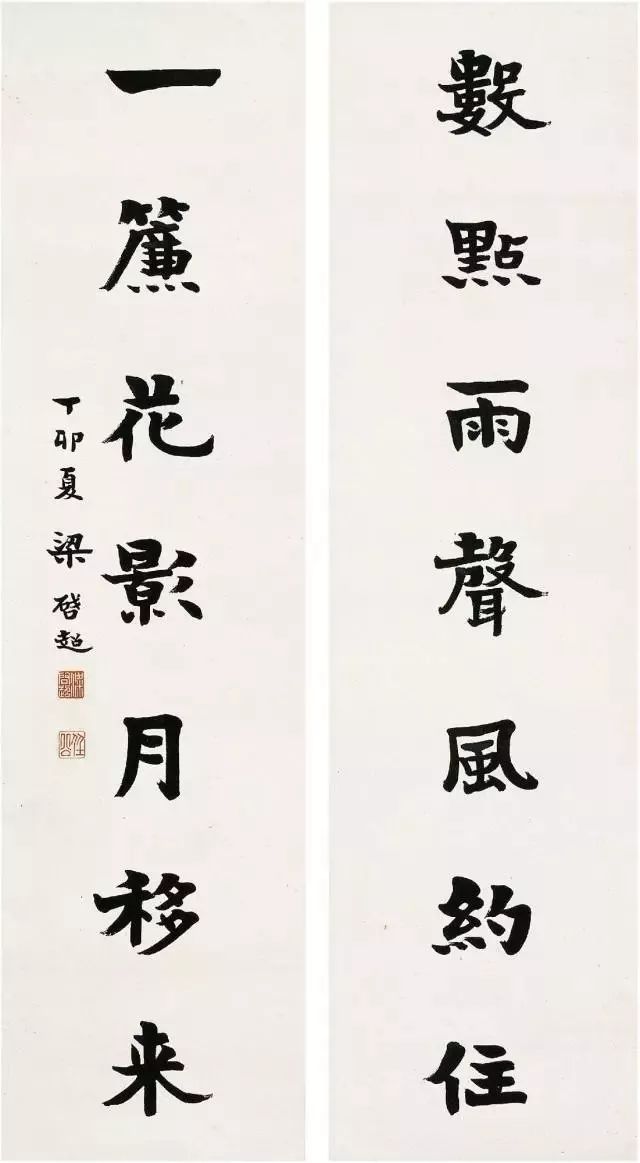 數點雨聲風約住
一簾花影月移来
丁卯夏 梁啓超
梁啓超
任公